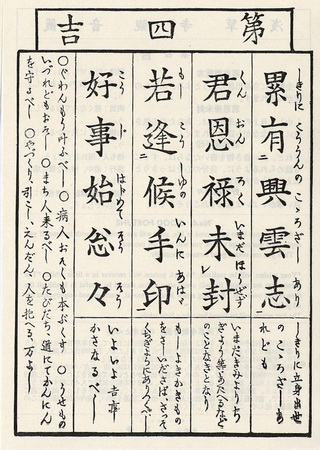 第四吉
累有興雲志
しきりに こううんの こゝろざし あり
しきりに立身出世
のこゝろざしあ
れども
君恩禄未封
くん おん ろく いまだ ほうぜず
いまだきみよりち
ぎよう等あたへるなど
のことなきとなり
若逢候手印
もし こうしゆの いんに あはゞ
もしよきかきもの
をさしいださば、さつそ
くちぎよにありつくべし
好事始忩々
こう じ はじめて そう そう
いよいよ吉事
かさなるべし
○ぐわんもう叶ふべし ○病人おそくも本ぶくす ○うせもの
いづれどもおそし ○まち人来るべし ○たびだち、道にてかんにん
を守るべし ○やづくり引こし、えんだん、人を抱へる、万よし